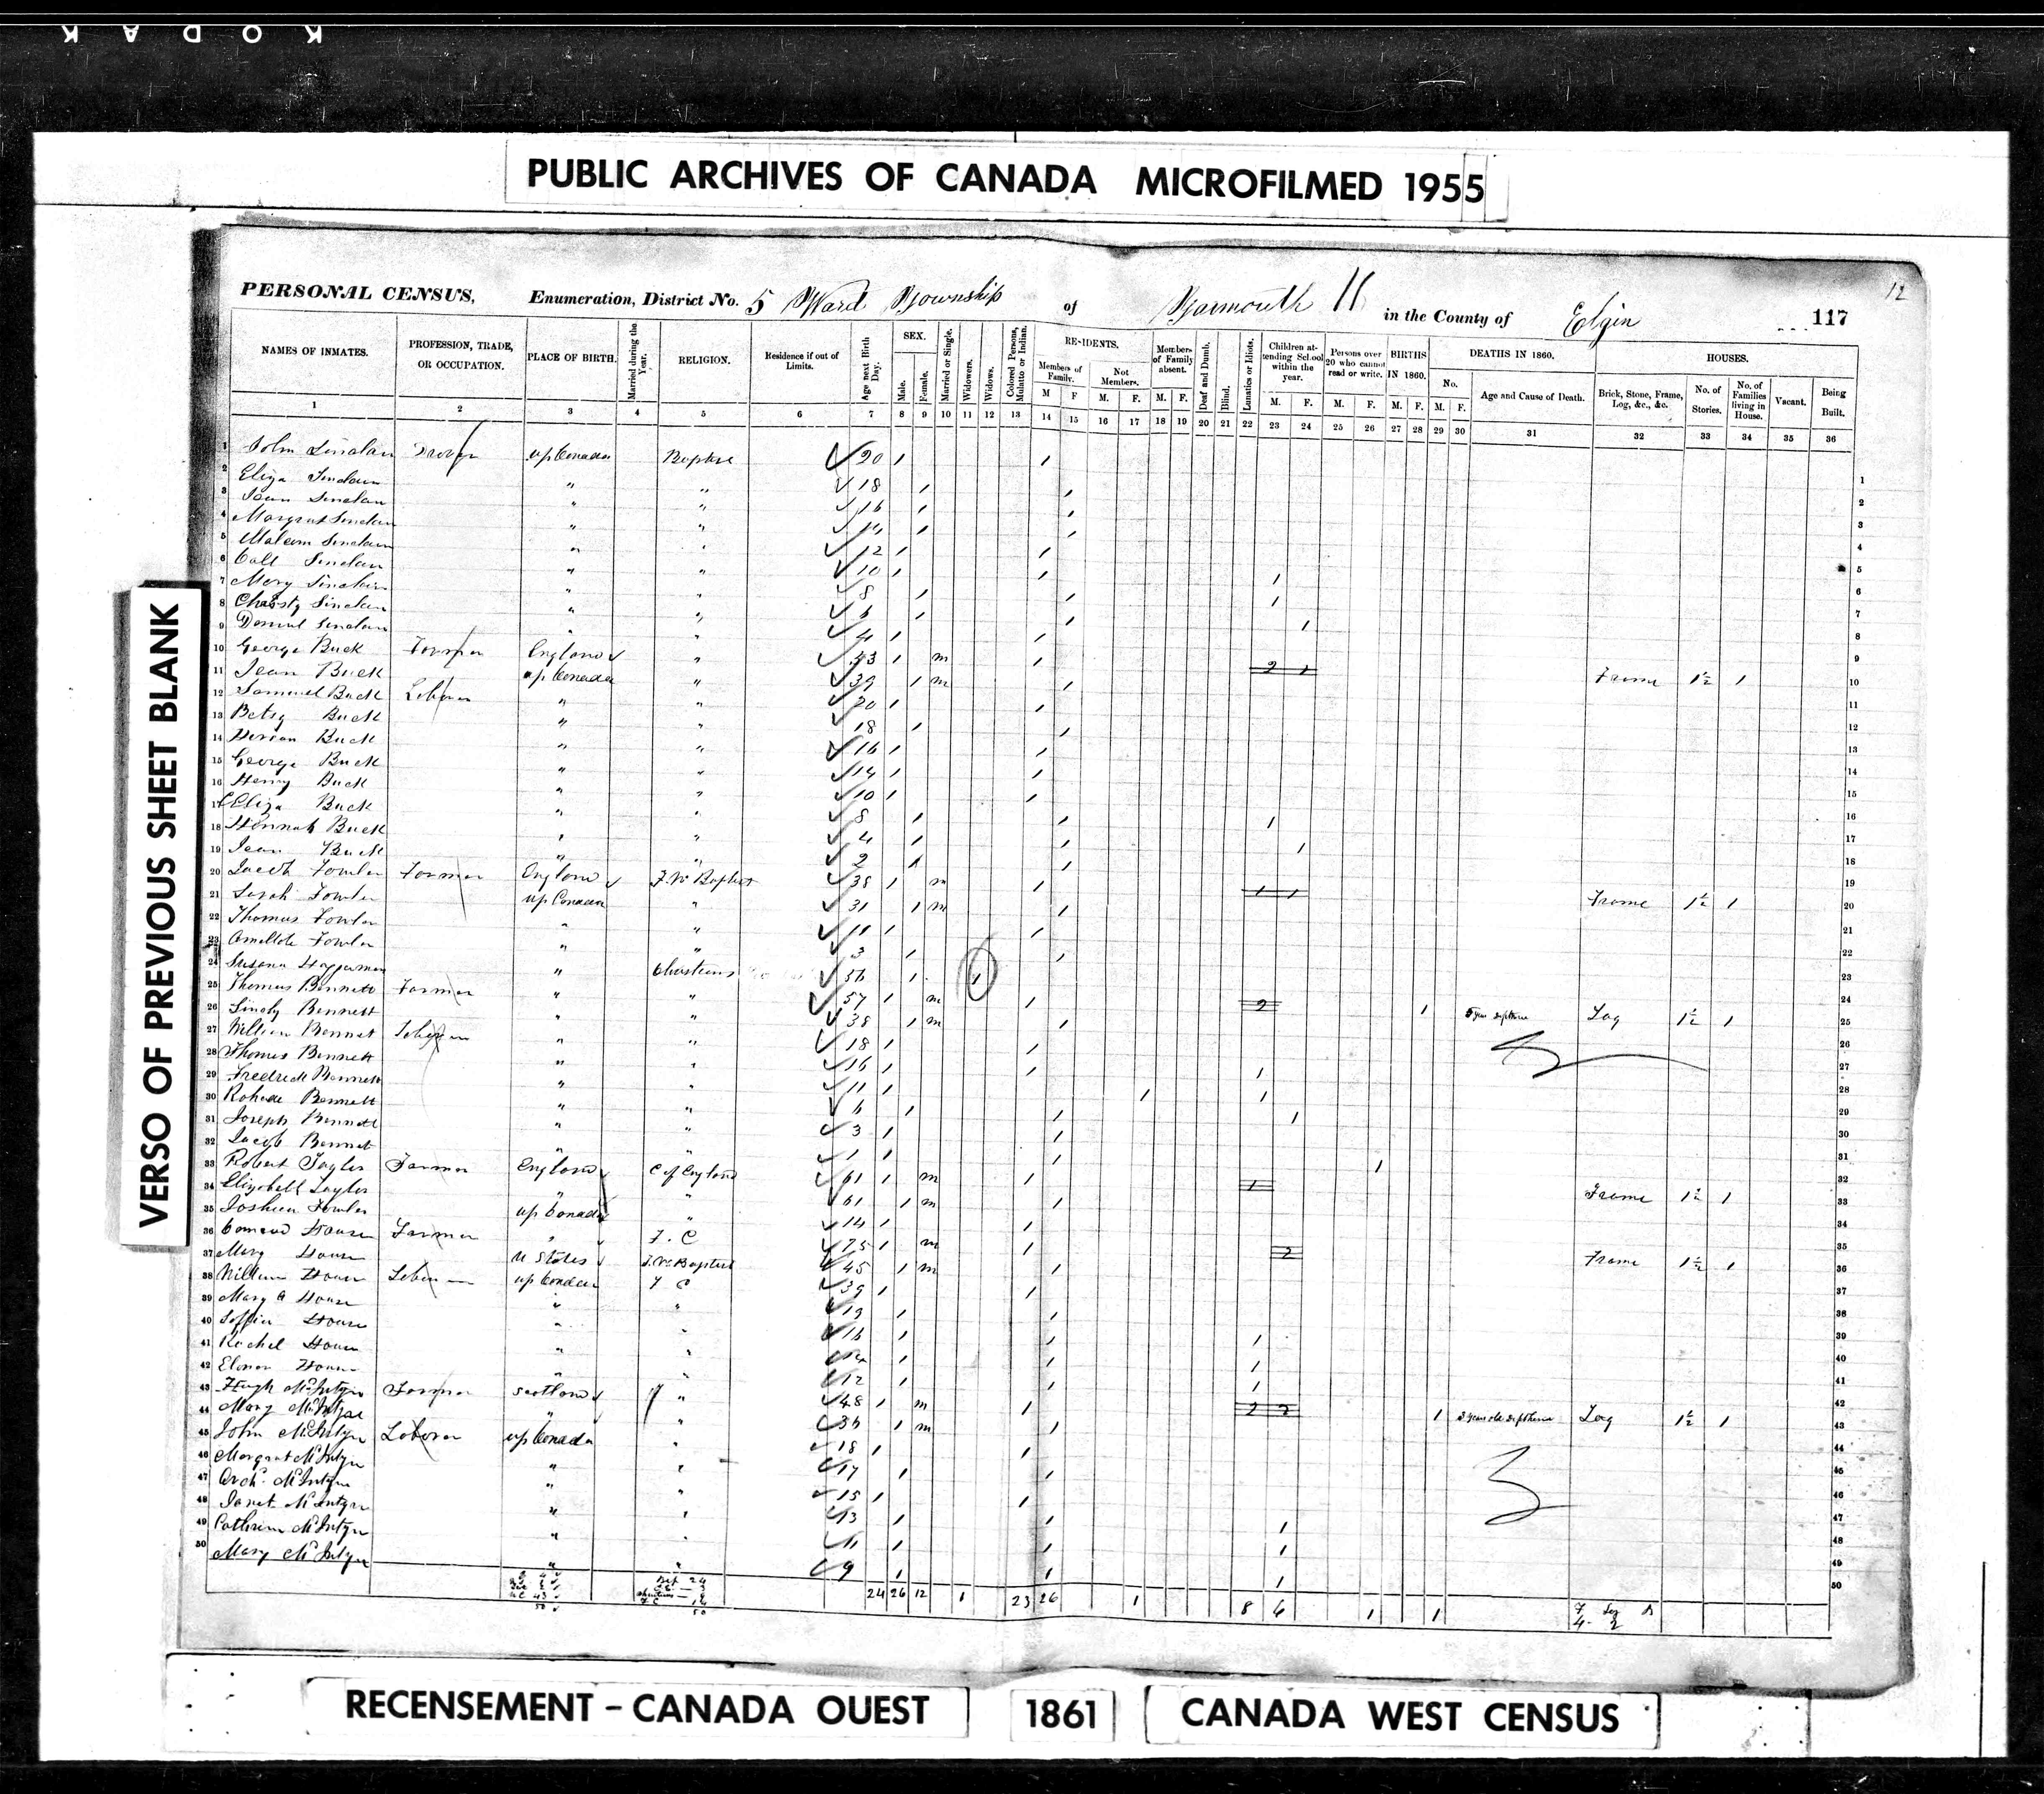 KODAK
PUBLIC ARCHIVES OF CANADA MICROFILMED 1955
VERSO OF PREVIOUS SHEET BLANK
12
PERSONAL CENSUS, Enumeration, District No. 5 Ward Township of Yarmouth in the County of Elgin 117
NAMES OF INMATES. PROFESSION, TRADE, OR OCCUPATION. PLACE OF BIRTH. Married during the Year. RELIGION. Residence if out of Limits. Age next Birth Day. SEX. Male. Female. Married or Single. Widowers. Widows. Colored Persons, Mulatto or Indian. RESIDENTS. Members of Family. M F Not Members. M. F. Members of Family absent. M. F. Deaf and Dumb. Blind. Lunatics or Idiots. Children attending School within the year. M. F. Persons over 20 who cannot read or write. M. F. BIRTHS IN 1860. M. F. DEATHS IN 1860. No. M. F. Age and Cause of Death. HOUSES. Brick, Stone, Frame, Log, &c., &c. No. of Stories. No. of Families living in House. Vacant. Being Built.
1 2 3 4 5 6 7 8 9 10 11 12 13 14 15 16 17 18 19 20 21 22 23 24 25 26 27 28 29 30 31 32 33 34 35 36
1 John Sinclair up Canada 20 1 1
2 Eliza Sinclair " " 18 1 1
3 Jean Sinclair " " 16 1 1
4 Margrat Sinclair " " 14 1 1
5 Malcom Sinclair " " 12 1 1
6 Sinclair " " 10 1 1 1
7 Mary Sinclair " " 8 1 1 1
8 Christy Sinclair " " 6 1 1 1
9 Sinclair " " 4 1 1
10 George Buck Farmer England " 43 1 m 1 2 1 Frame 1½ 1
11 Jean Buck up Canada " 39 1 m 1
12 Samuel Buck " " 20 1 1
13 Betsy Buck " " 18 1 1
14 Buck " " 16 1 1
15 George Buck " " 14 1 1
16 Henry Buck " " 10 1 1
17 Eliza Buck " " 8 1 1 1
18 Hannah Buck " " 4 1 1 1
19 Jean Buck " " 2 1 1
20 Fowler Farmer England F. W Baptist 38 1 m 1 1 1 Frame 1½ 1
21 Sarah Fowler up Canada " 31 1 m 1
22 Thomas Fowler " " 11 1 1
23 Fowler " " 3 1 1
24 Susana " Christians 56 1 1
25 Thomas Bennett Farmer " " 57 1 m 1 2 1 Log 1½ 1
26 Bennett " " 38 1 m 1
27 William Bennet " " 18 1 1
28 Thomas Bennett " " 16 1 1 1
29 Fredrick Bennett " " 11 1 1 1
30 Bennett " " 6 1 1 1
31 Joseph Bennett " " 3 1 1
32 Jacob Bennet " " 1 1 1 1
33 Robert Taylor Farmer England C of England 61 1 m 1 1 Frame 1½ 1
34 Elizabeth Taylor " " 61 1 m 1
35 Joshua Fowler up Canada " 14 1 1
36 House Farmer " F. C 75 1 m 1 2 Frame 1½ 1
37 Mary House U States F. W Baptist 45 1 m 1
38 William House up Canada F C 39 1 1
39 Mary A House " " 19 1 1
40 House " " 16 1 1 1
41 Rachel House " " 14 1 1 1
42 House " " 12 1 1 1
43 Hugh McIntyre Farmer Scotland " 48 1 m 1 2 2 1 Log 1½ 1
44 Mary McIntyre " " 1 m 1
45 John McIntyre up Canada " 18 1 1
46 Margrat McIntyre " " 17 1 1
47 Arch. McIntyre " " 15 1 1
48 Janet McIntyre " " 13 1 1 1
49 McIntyre " " 11 1 1 1
50 Mary McIntyre " " 9 1 1 1
24 26 12 1 23 26 1 8 6 1 1
RECENSEMENT – CANADA OUEST 1861 CANADA WEST CENSUS